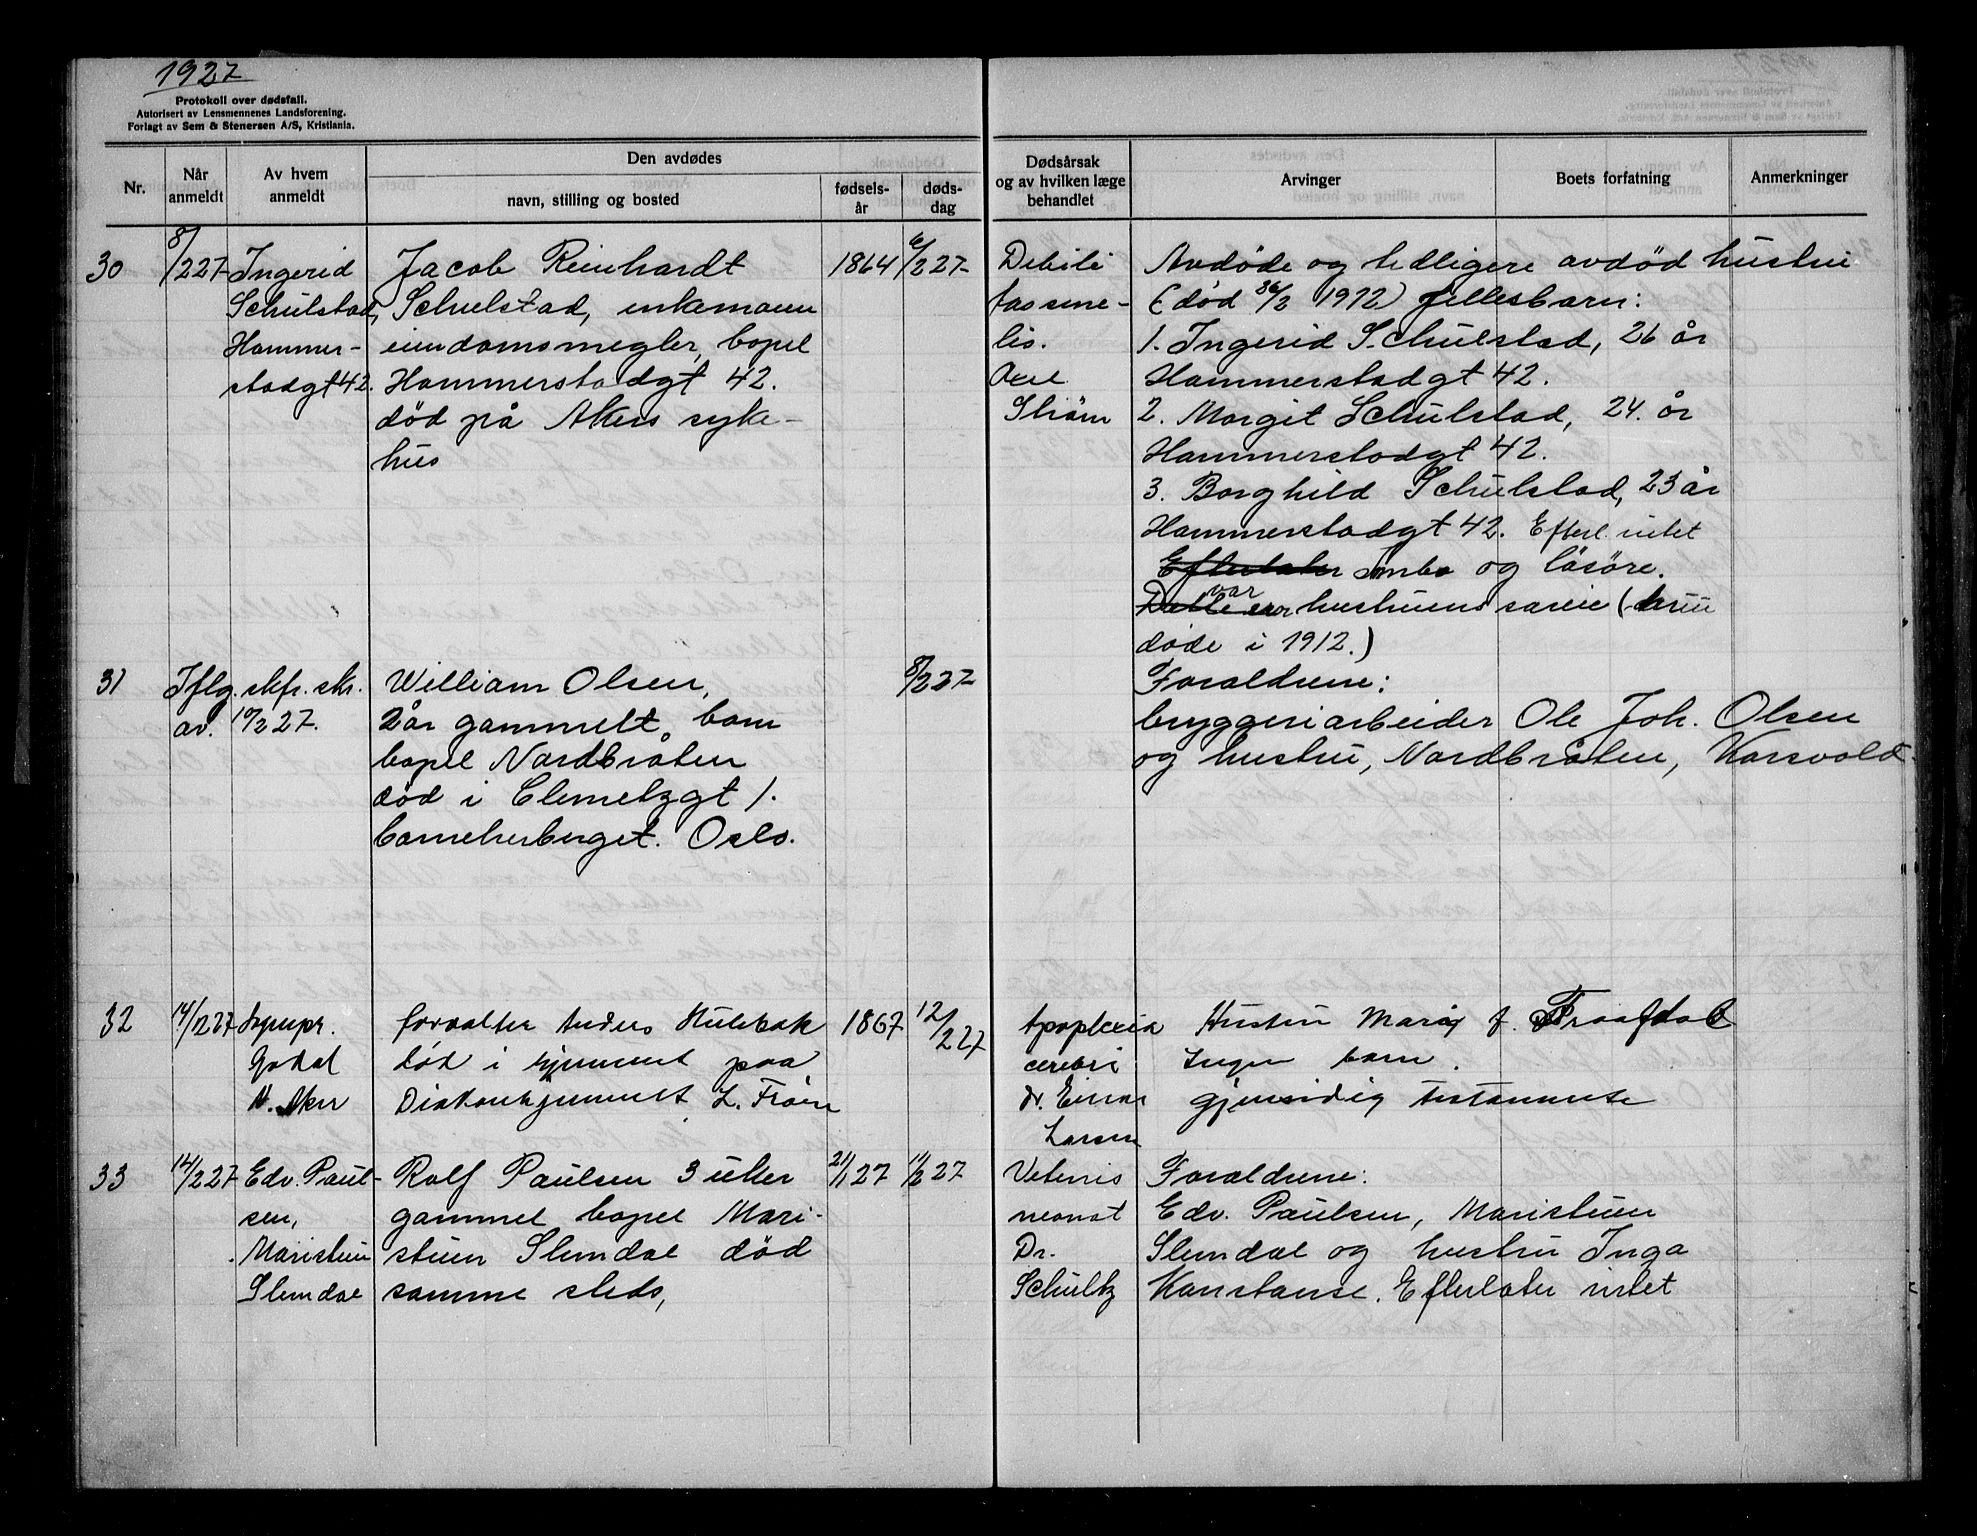 1927
Protokoll over dødsfall.
Autorisert av Lensmennenes Landsforening.
Forlagt av Sem & Stenersen A/S, Kristiania.
Nr.
Når anmeldt
Av hvem anmeldt
Den avdødes
navn, stilling og bosted
fødsels-år
døds-dag
Dødsårsak og av hvilken læge behandlet
Arvinger
Boets forfatning
Anmerkninger
30
8/2 27
Ingerid
Schulstad,
Hammer-
stadgt 42.
Jacob Reinhardt
Schulstad, enkemann
eiendomsmegler, bopel
Hammerstadgt 42.
død på Akers syke-
hus
1864
6/2 27
Debili
tas sene-
lis.
Axel
Strøm
Avdøde og tidligere avdød hustru
(død 1912) fellesbarn:
1. Ingerid Schulstad, 26 år
Hammerstadgt 42.
2. Margit Schulstad, 24 år
Hammerstadgt 42.
3. Borghild Schulstad, 23 år
Hammerstadgt 42. Efterl. intet
Efterlater innbo og løsøre.
Dette var hustruens særeie (hun
døde i 1912.)
31
Iflg. skfr. skr.
av. 10/2 27.
William Olsen,
2 år gammelt barn
bopel Nordbråten
død i Clemetzgt 1.
barneherberget. Oslo.
8/2 27
Foraldrene:
bryggeriarbeider Ole Joh. Olsen
og hustru, Nordbråten, Korsvold
32
14/2 27
Godal
V. Aker
forvalter Anders Hulebak
død i hjemmet paa
Diakonhjemmet V. Frøen
1867
12/2 27
Apoplexia
cerebri
dr. Einar
Larsen
Hustru Marie f. Traafdal
Ingen barn.
gjensidig testamente
33
14/2 27
Edv. Paul-
sen,
Maristuen
Slemdal
Rolf Paulsen 3 uker
gammel bopel Mari-
stuen Slemdal død
samme steds,
21/1 27
11/2 27
neonat
Dr.
Schultz
Foraldrene:
Edv. Paulsen, Maristuen
Slemdal og hustru Inga
Konstanse. Efterlater intet